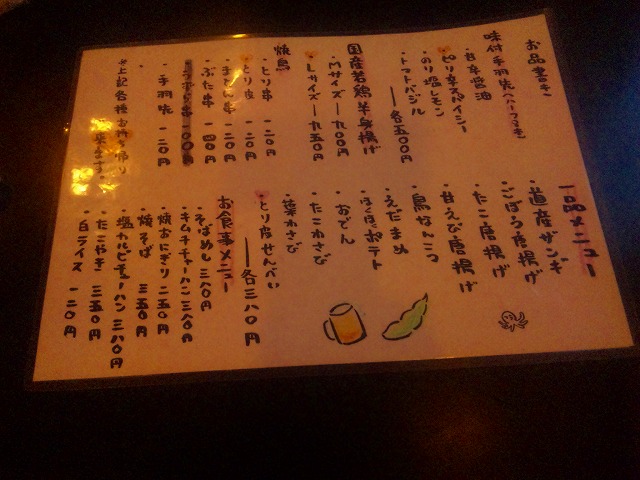 お品書き
味付手羽焼(ハーブ
・甘辛醤油
・ピリ辛スパイシー
・のり塩レモン
・トマトバジル
――各五〇〇円
国産若鶏半身揚げ
・Mサイズ―九〇〇円
・Lサイズ―一九五〇円
焼鳥
・とり串 一二〇円
・とり皮 一二〇円
・まとん串 一二〇円
・ぶた串 一四〇円
串 一〇〇円
・手羽焼 一二〇円
※上記各種お持ち帰り
来ます。
一品メニュー
・道産ザンギ
・ごぼう唐揚げ
・たこ唐揚げ
・甘えび唐揚げ
・鳥なんこつ
・えだまめ
・ほくほくポテト
・おでん
・たこわさび
・葉わさび
・とり皮せんべい
――各三八〇円
お食事メニュー
・そばめし 三八〇円
・キムチチャーハン 三八〇円
・焼おにぎり 二五〇円
・焼そば 三五〇円
・塩カルビチャーハン 三八〇円
・たこやき 三五〇円
・白ライス 一二〇円